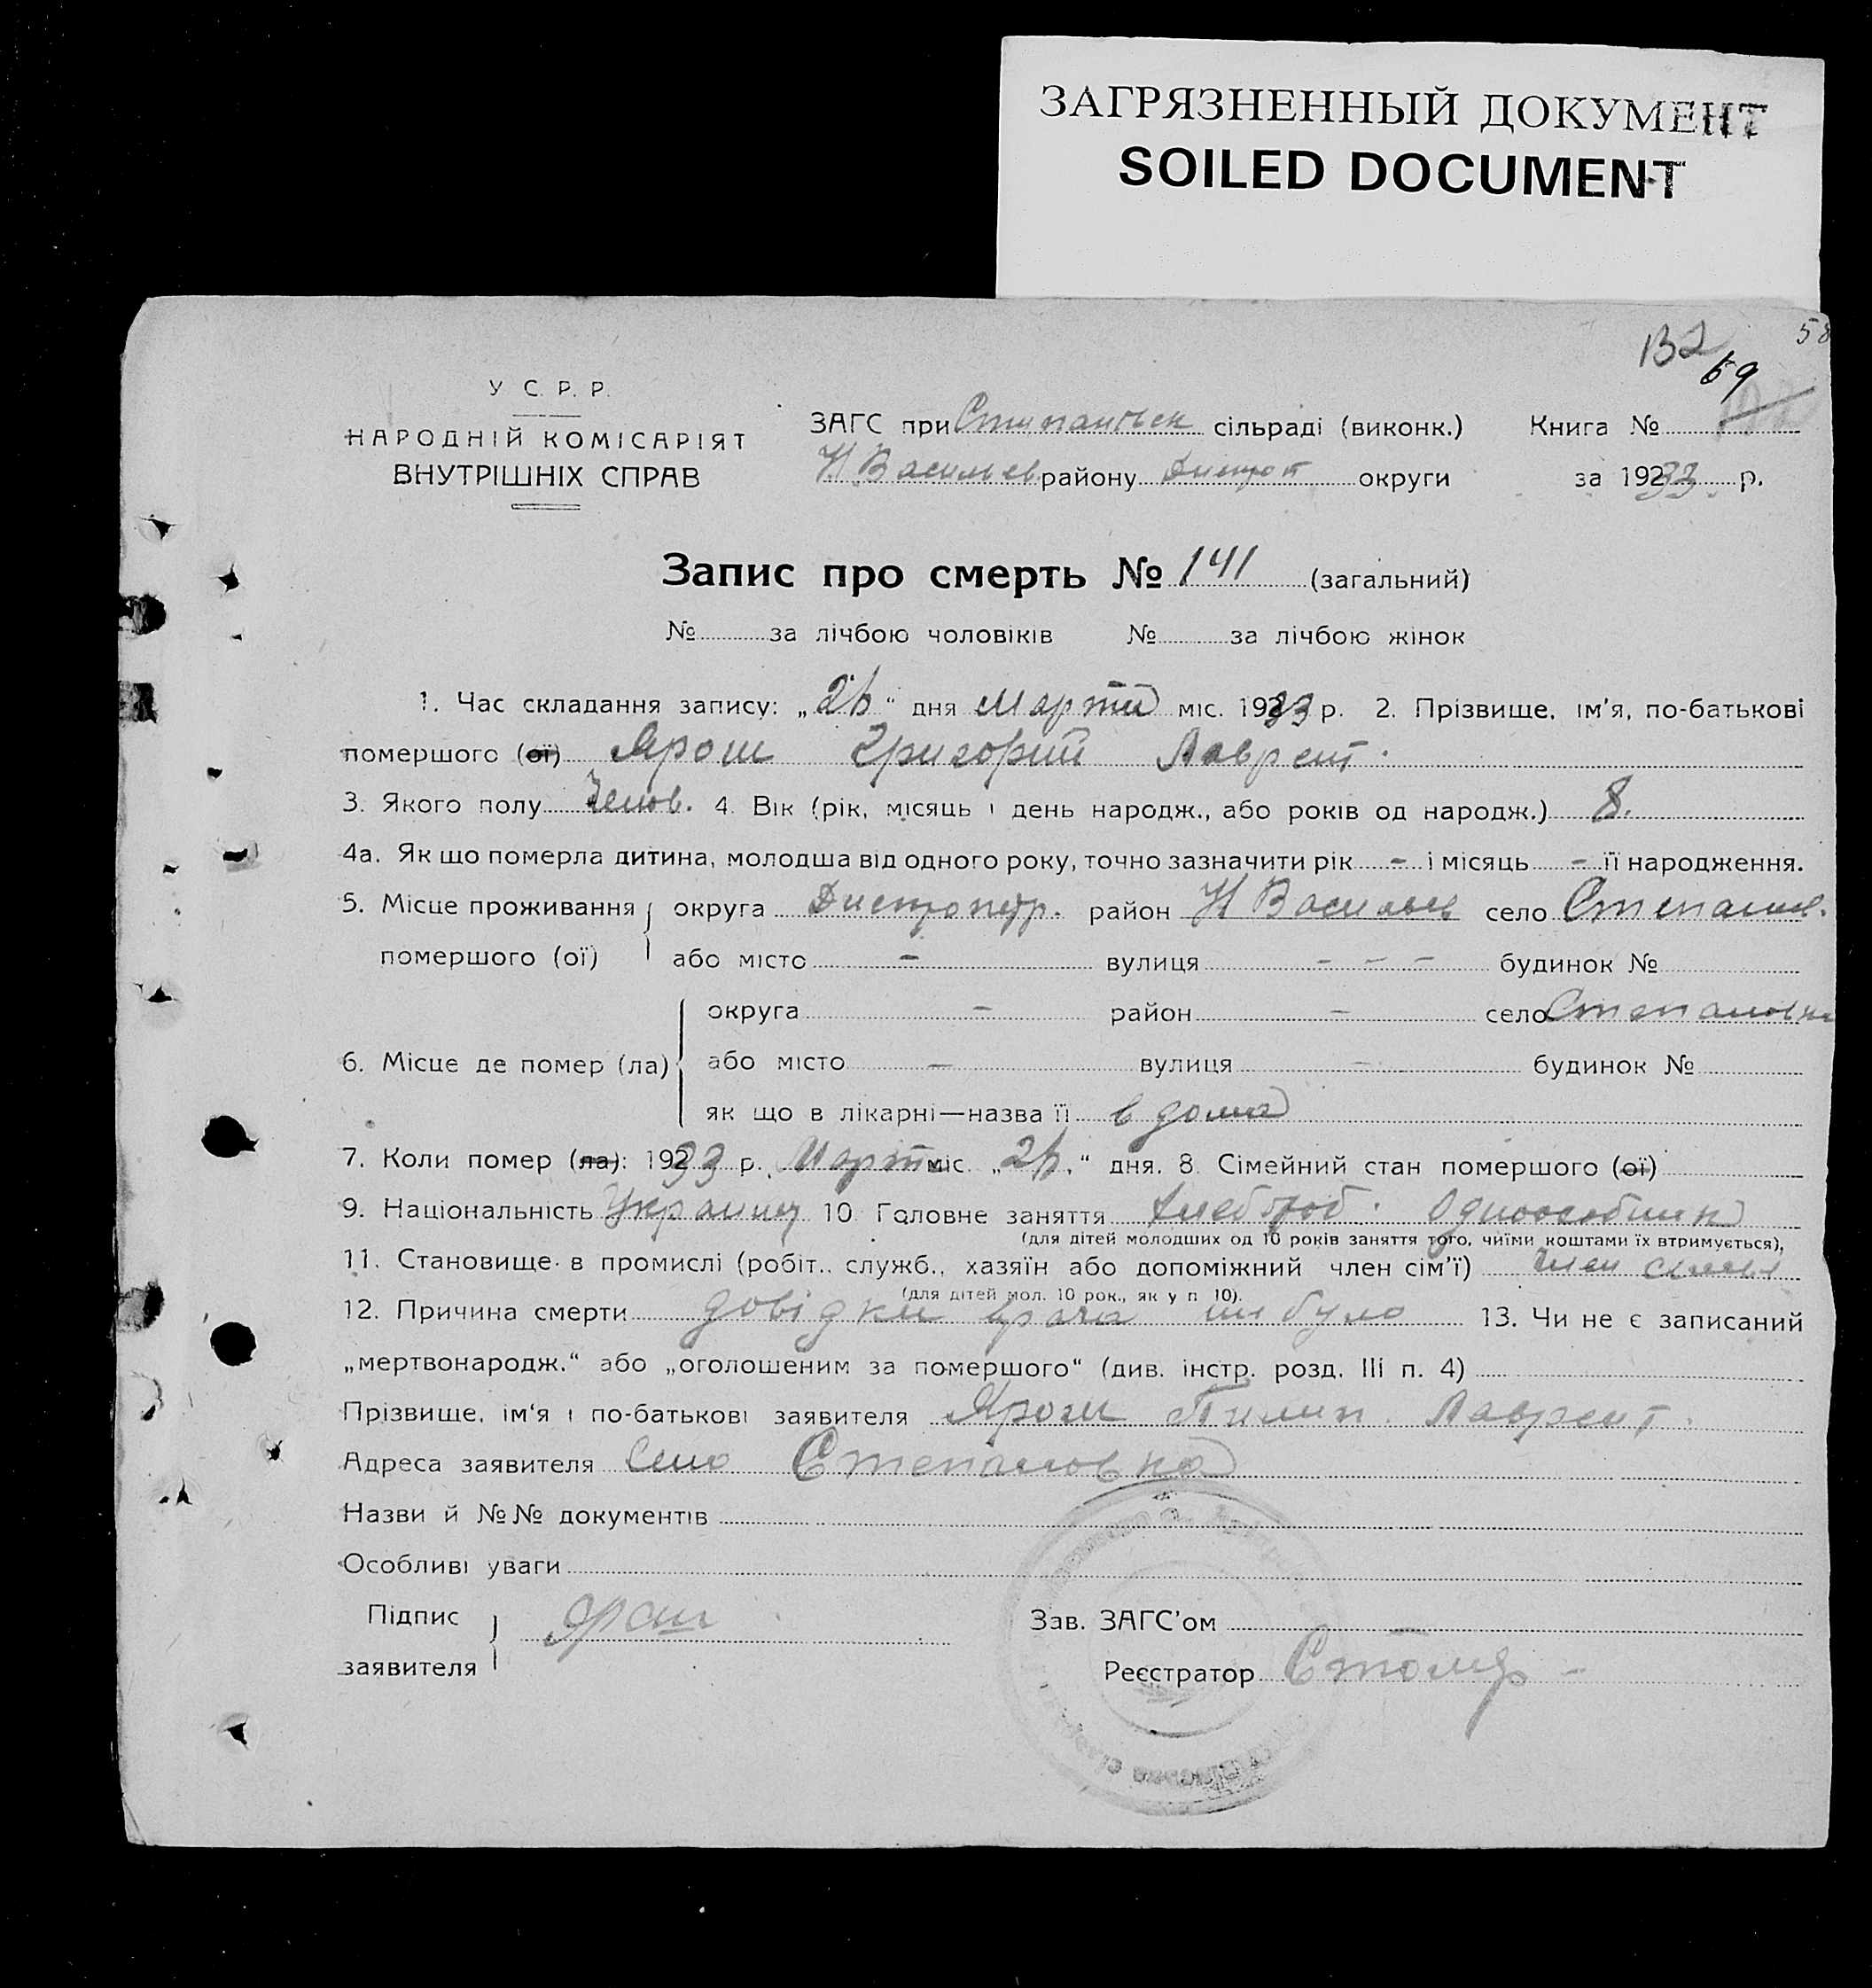 ЗАГРЯЗНЕННЫЙ ДОКУМЕНТ
SOILED DOCUMENT
132 58
69
У С. Р. Р.
НАРОДНІЙ КОМІСАРІЯТ
ВНУТРІШНІХ СПРАВ
ЗАГС при сільраді (виконк.) Книга №
Н Васильев району округи за 1933 р.
Запис про смерть № 141 (загальний)
№ за лічбою чоловіків № за лічбою жінок
1. Час складання запису: „26“ дня Марта міс. 1933 р. 2. Прізвище, ім'я, по-батькові
помершого (ої) Ярош Григорий Лаврент.
3. Якого полу 4. Вік (рік, місяць і день народж., або років од народж.) 8.
4а. Як що померла дитина, молодша від одного року, точно зазначити рік – і місяць – її народження.
5. Місце проживання округа Днепропетр. район Н Васильев село Степанов.
помершого (ої) або місто – вулиця – – – будинок №
округа – район – село Степановка
6. Місце де помер (ла) або місто – вулиця – будинок №
як що в лікарні—назва її в дома
7. Коли помер (ла): 1933 р. Март міс. „26.“ дня. 8. Сімейний стан помершого (ої)
9. Національність Украинц 10. Головне заняття хлебороб. Одноособник
(для дітей молодших од 10 років заняття того, чиїми коштами їх втримується),
11. Становище в промислі (робіт., служб., хазяїн або допоміжний член сім'ї) член семьи
(для дітей мол. 10 рок., як у п 10).
12. Причина смерти довідки врача ни було 13. Чи не є записаний
„мертвонародж.“ або „оголошеним за помершого“ (див. інстр. розд. III п. 4)
Прізвище, ім'я і по-батькові заявителя Ярош Пилип. Лаврент.
Адреса заявителя Село Степановка
Назви й №№ документів
Особливі уваги
Підпис Ярош Зав. ЗАГС'ом
заявителя Реєстратор